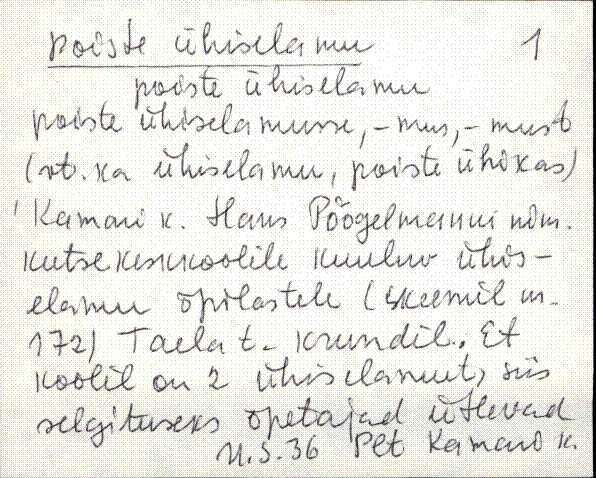 poiste ühiselamu 1
poiste ühiselamu
poiste ühiselamusse, -mus, -must
(vt. ka ühiselamu, poiste ühikas)
Kamari k. Hans Pöögelmanni nim.
kutsekeskkoolile kuuluv ühis-
elamu õpilastele (skeemil nr.
172) Taela t. krundil. Et
koolil on 2 ühiselamut, siis
selgituseks õpetajad ütlevad
36 Plt Kamari k.